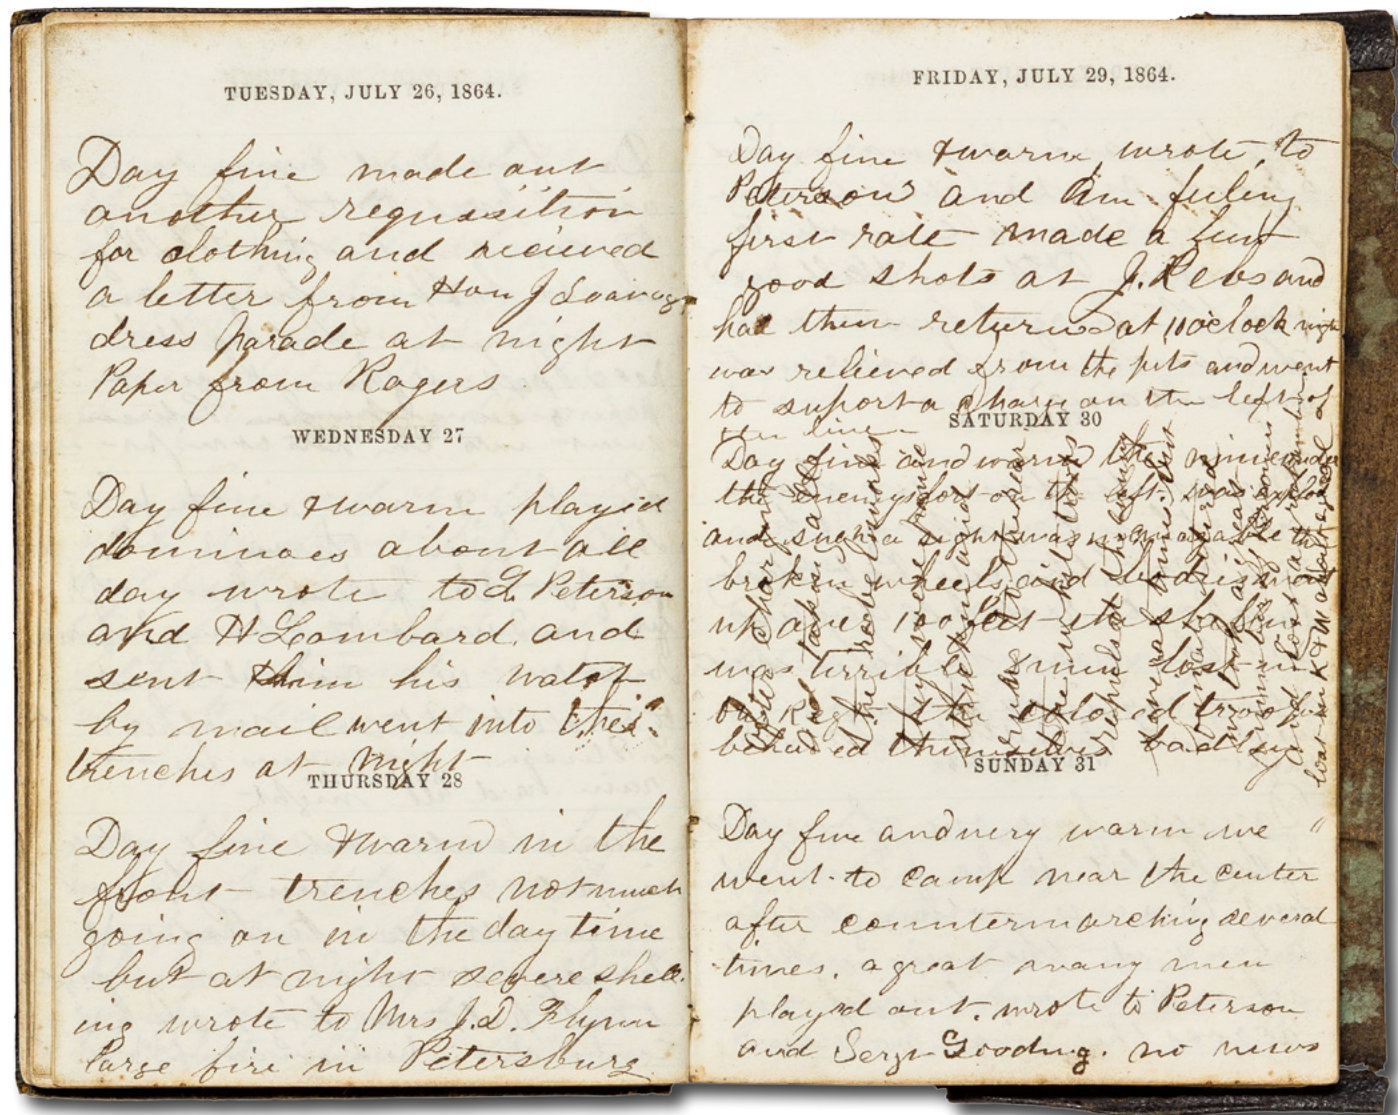 TUESDAY, JULY 26, 1864.
Day fine made out
another requisition
for clothing and recieved
a letter from Hon J
dress parade at night
Paper from Rogers
WEDNESDAY 27
Day fine & warm played
dominoes about all
day wrote to L. Peterson
and H Lombard and
sent him his watch
by mail went into the
trenches at night
THURSDAY 28
Day fine & warm in the
front trenches not much
going on in the day time
but at night severe shell
ing wrote to Mrs J. D. Flynn
large fire in Petersburg
FRIDAY, JULY 29, 1864.
Day fine & warm wrote to
Peterson and Am feeling
first rate made a few
good shots at J. Rebs and
had them returned at 11 oclock night
was relieved from the pits and went
to suport a charge on the left of
the line
SATURDAY 30
Day fine and warm the mine under
the enemys fort on the left was explo
and such a sight was the
broken wheels and bodies went
up over 100 feet the shelling
was terrible men lost in
our Regt the colored troops
behaved themselves badly
after charging
and taking
the rebel works
they
and
rune to the rear
the
repulsed the enemy
SUNDAY 31
Day fine and very warm we "
went to camp near the center
after countermarching several
times. a great many men
play'd out. wrote to Peterson
and Sergt Gooding. no news